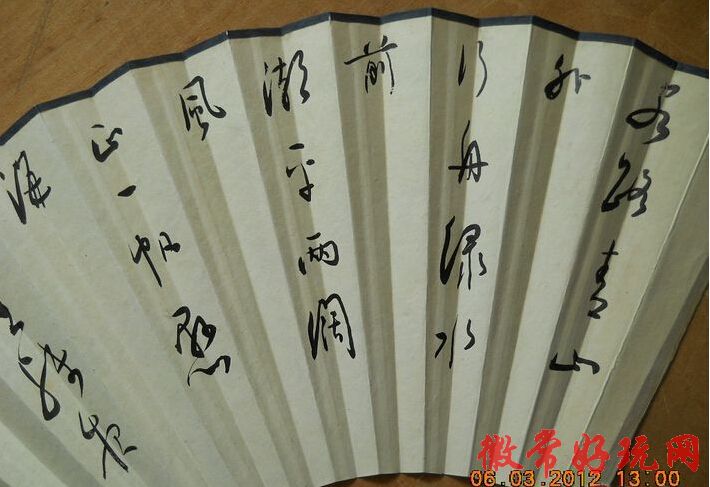 客路青山
外
行舟绿水
前
潮平兩濶
風
正一帆懸
海
徽常好玩网
06.03.2012 13:00